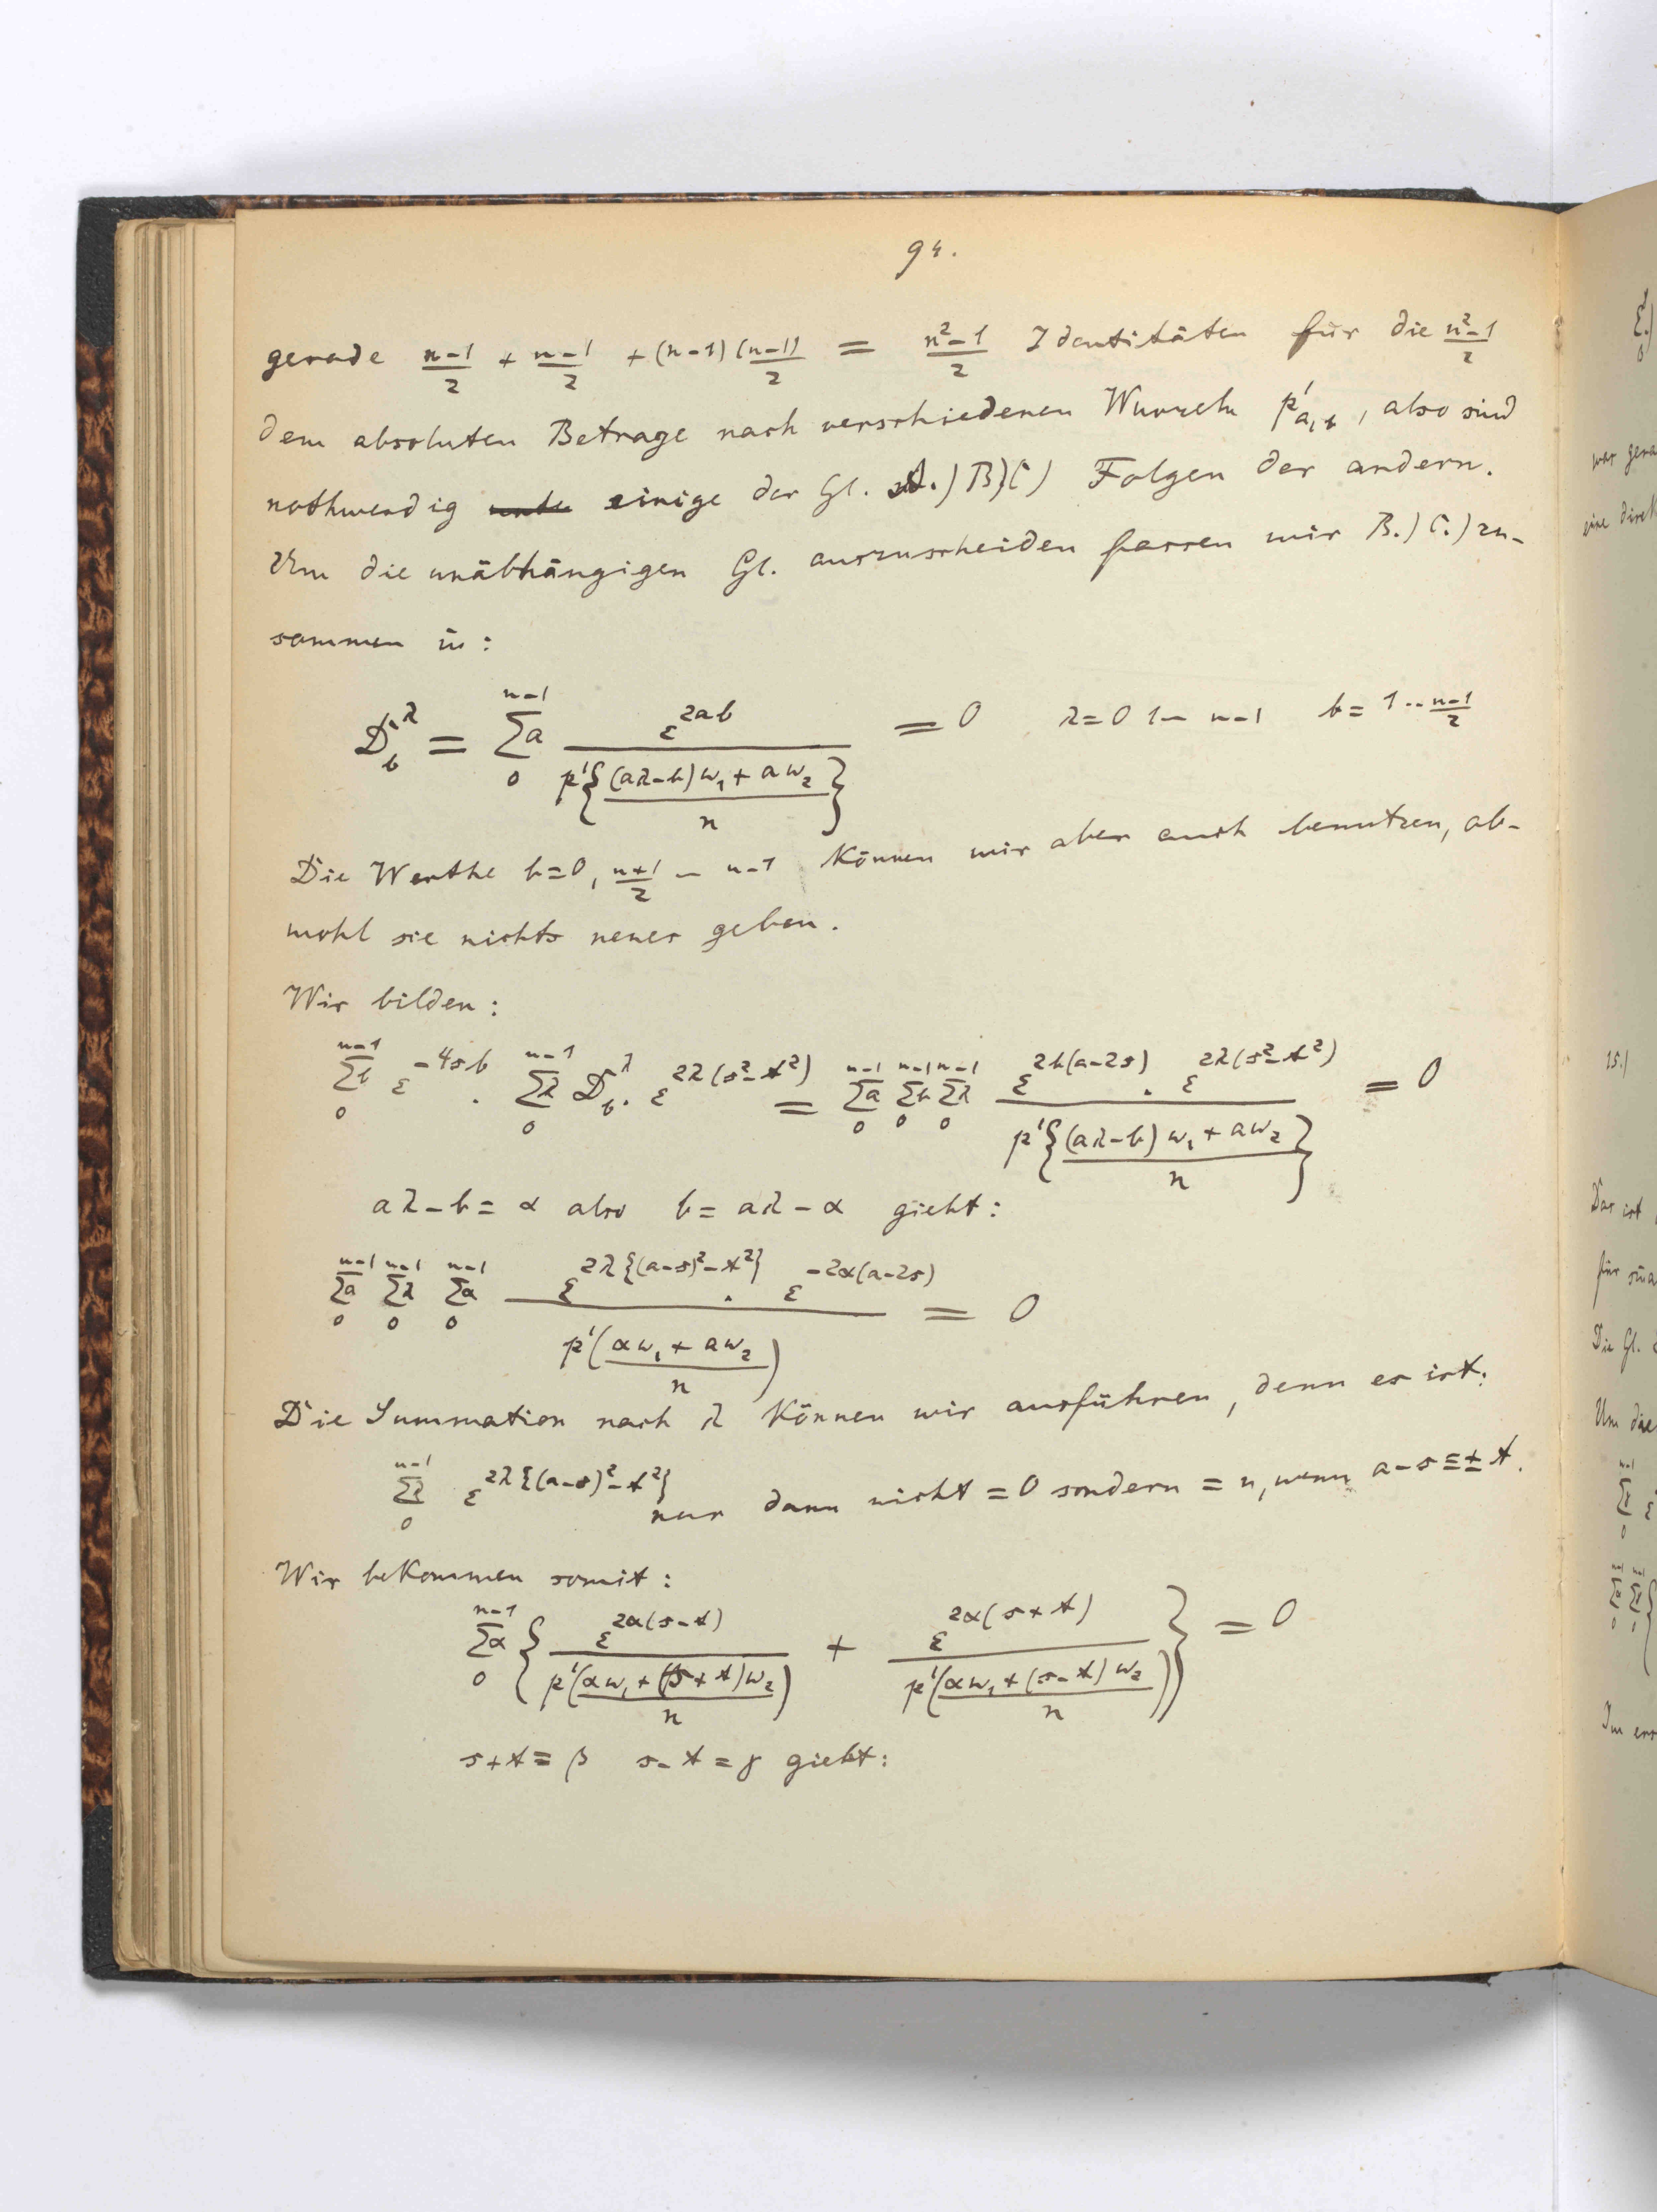 94.
gerade \frac{n-1}{2} + \frac{n-1}{2} + (n-1) \frac{(n-1)}{2} = \frac{n^2-1}{2} Identitäten für die \frac{n^2-1}{2}
dem absoluten Betrage nach verschiedenen Wurzeln p'_{a,b}, also sind
nothwendig einige der Gl. A.) B) C) Folgen der andern.
Um die unabhängigen Gl. auszuscheiden fassen wir B.) C.) zu-
sammen in:
D_b^λ = \sum_0^{n-1} a \frac{ε^{2ab}}{p'\{\frac{(aλ-b)w_1 + aw_2}{n}\}} = 0 λ = 0 1 – n-1 b = 1 .. \frac{n-1}{2}
Die Werthe b=0, \frac{n+1}{2} – n-1 können wir aber auch benutzen, ob-
wohl sie nichts neues geben.
Wir bilden:
\sum_0^{n-1} b ε^{-4sb} . \sum_0^{n-1} λ D_b^λ . ε^{2λ(s^2-t^2)} = \sum_0^{n-1} a \sum_0^{n-1} b \sum_0^{n-1} λ \frac{ε^{2b(a-2s)} . ε^{2λ(s^2-t^2)}}{p'\{\frac{(aλ-b)w_1 + aw_2}{n}\}} = 0
aλ-b = α also b = aλ-α giebt:
\sum_0^{n-1} a \sum_0^{n-1} λ \sum_0^{n-1} α \frac{ε^{2λ\{(a-s)^2-t^2\}} . ε^{-2α(a-2s)}}{p'(\frac{αw_1 + aw_2}{n})} = 0
Die Summation nach λ können wir ausführen, denn es ist:
\sum_0^{n-1} λ ε^{2λ\{(a-s)^2-t^2\}} nur dann nicht = 0 sondern = n, wenn a-s ≡ ± t.
Wir bekommen somit:
\sum_0^{n-1} α \{ \frac{ε^{2α(s-t)}}{p'(\frac{αw_1 + (s+t)w_2}{n})} + \frac{ε^{2α(s+t)}}{p'(\frac{αw_1 + (s-t)w_2}{n})} \} = 0
s+t = β s-t = γ giebt: